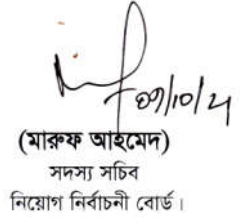 (মারুফ আহমেদ)
সদস্য সচিব
নিয়োগ নির্বাচনী বোর্ড।